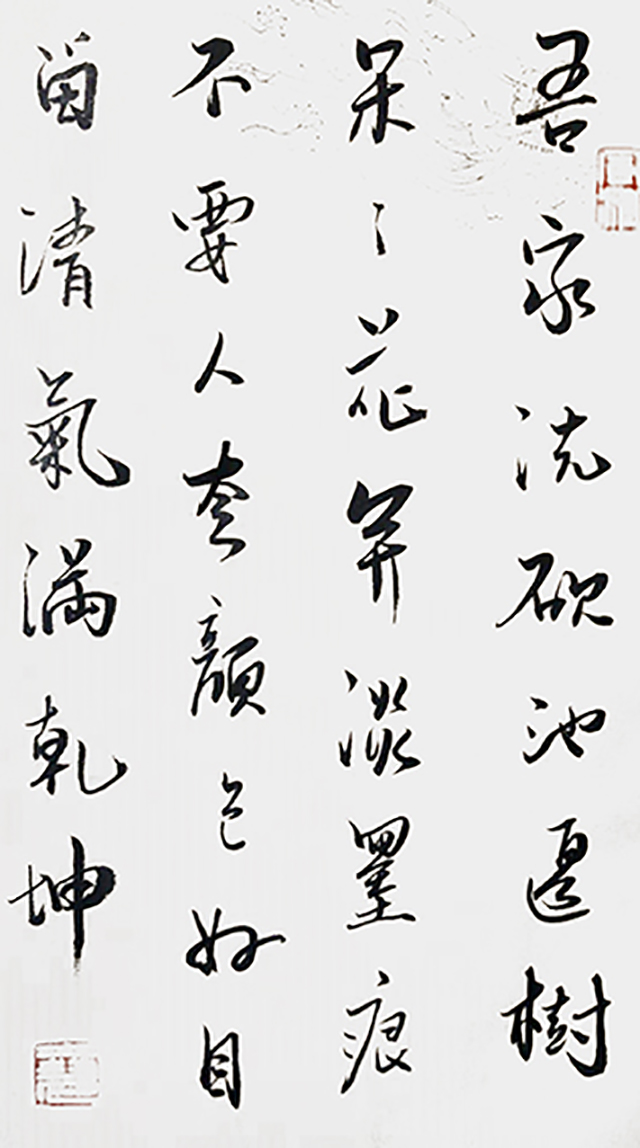 吾家洗硯池邊樹
朵々花開淡墨痕
不要人夸顏色好目
留清氣滿乾坤